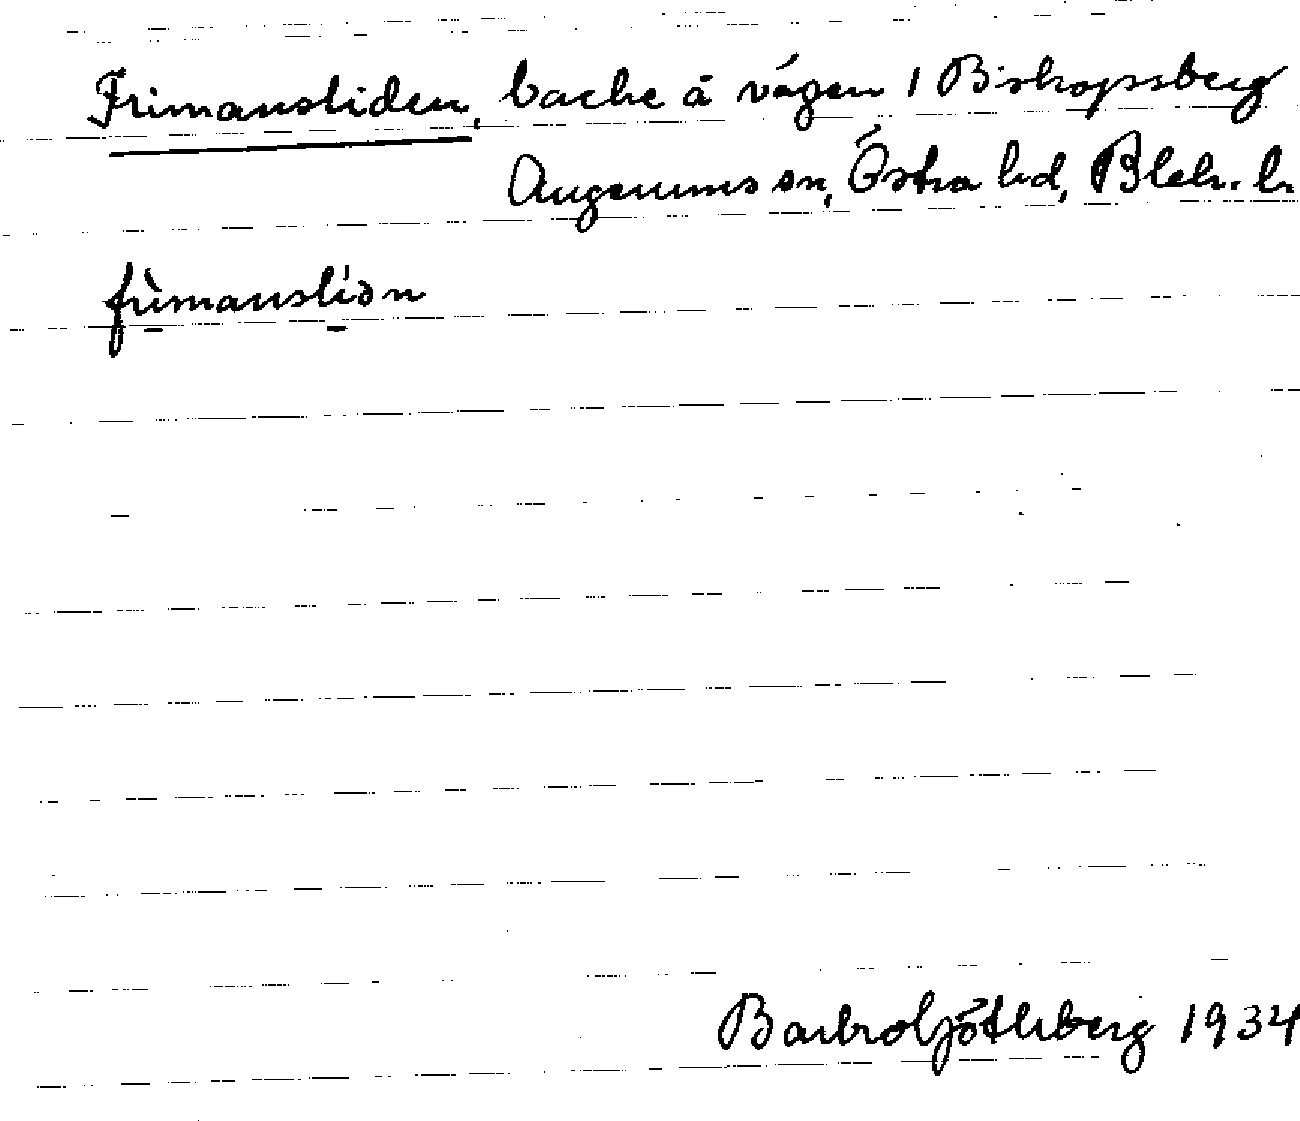 Frimansliden, backe å vägen i Biskopsberg
Augerums sn, Östra hd, Blek. l.
frìmanslíən
Barbro Göthberg 1934